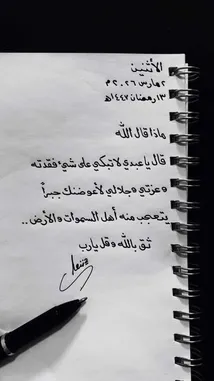 الأثنين
٢ مارس ٢٠٢٦ م
١٣ رمضان ١٤٤٧هـ
ماذا قال الله
قال ياعبدي لاتبكي على شيء فقدته
وعزتي وجلالي لأعوضنك جبراً
يتعجب منه أهل السموات والأرض..
ثق بالله وقل يارب